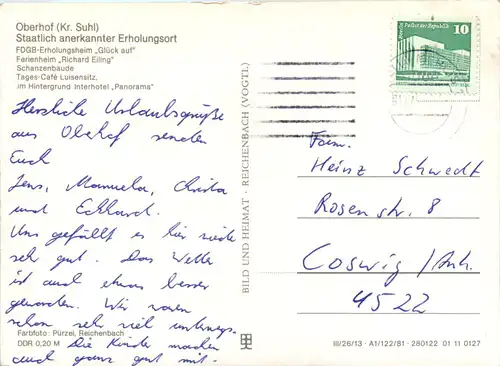 Oberhof (Kr. Suhl)
Staatlich anerkannter Erholungsort
FDGB-Erholungsheim „Glück auf"
Ferienheim „Richard Eiling"
Schanzenbaude
Tages-Café Luisensitz,
im Hintergrund Interhotel „Panorama"
Herzliche Urlaubsgrüße
aus Obehof senden
Euch
Jens, Manuela, Christa
und Eckhard.
Uns gefällt es hier wieder
sehr gut. Das Wetter
ist auch etwas besser
geworden. Wir waren
schon sehr viel unterwegs.
Die Kinder machen
auch ganz gut mit.
Farbfoto: Pürzel, Reichenbach
DDR 0,20 M
BILD UND HEIMAT · REICHENBACH (VOGTL)
Palast der Republik
10
Fam.
Heinz Schwedt
Rosenstr. 8
Coswig/Anh.
4522
III/26/13 · A1/122/81 · 280122 01 11 0127